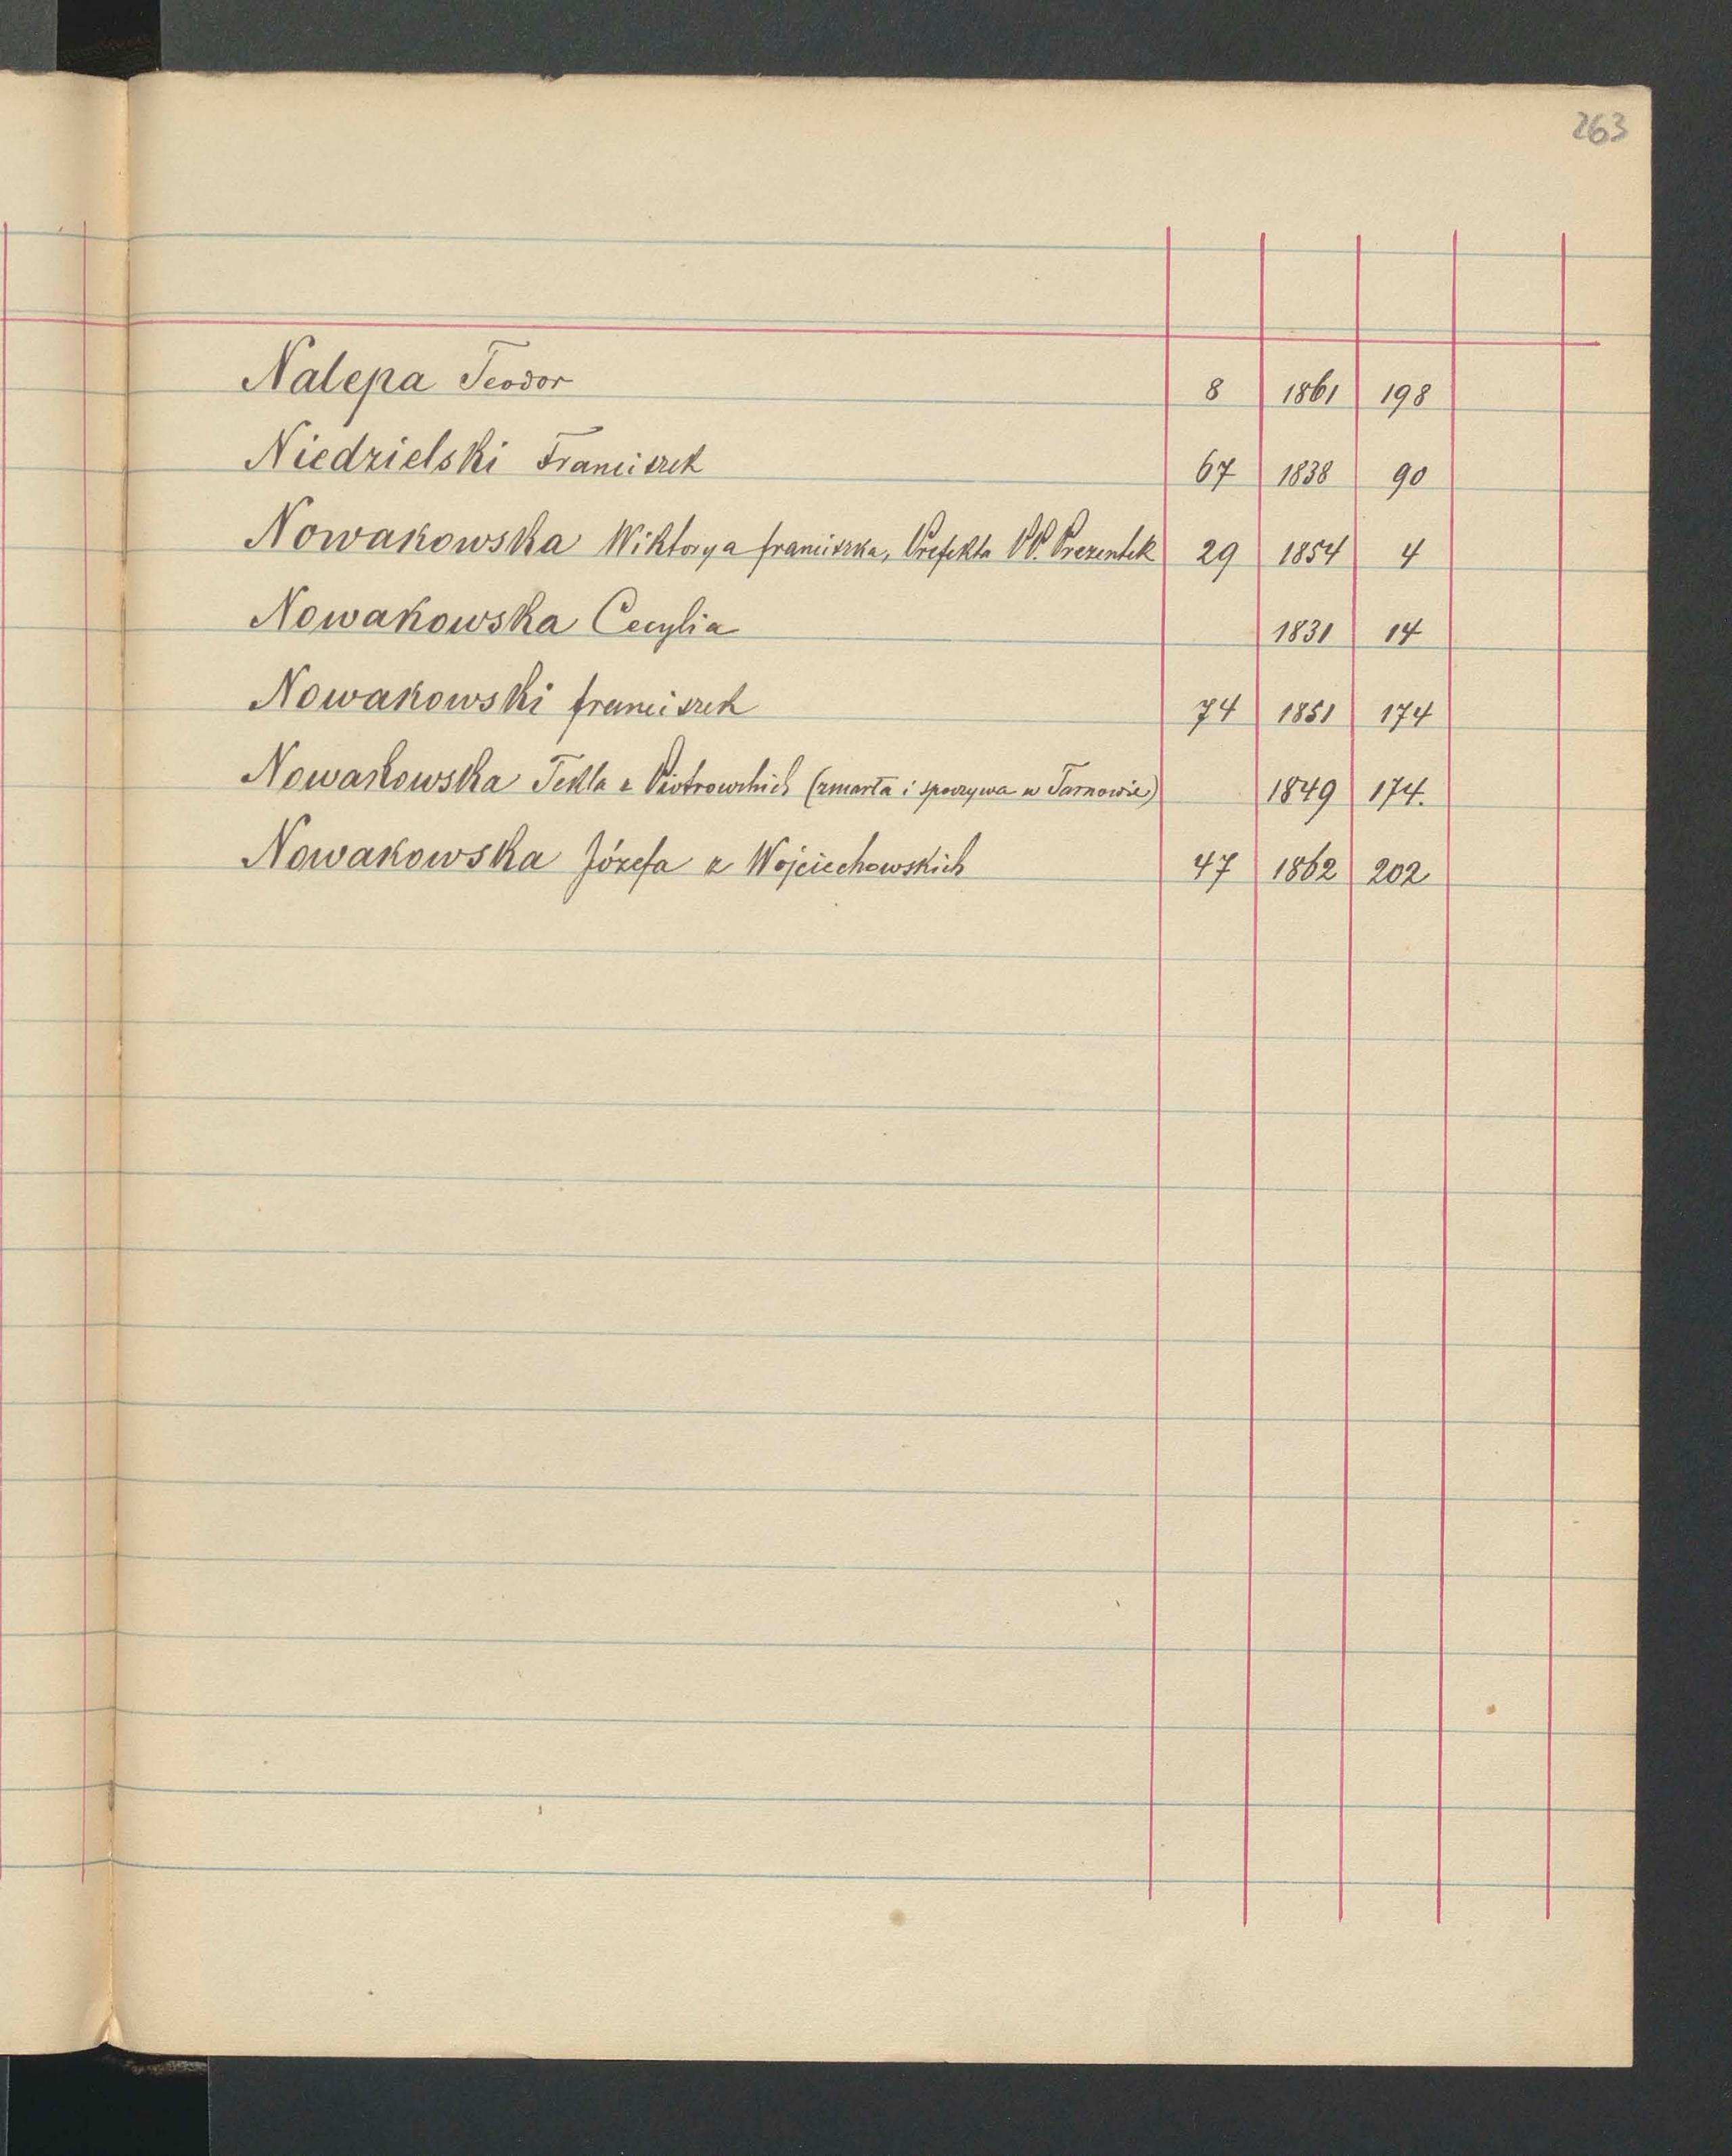 263
Nalepa Teodor 8 1861 198
Niedzielski Franciszek 67 1838 90
Nowakowska Wiktorya Franciszka, Prefekta PP. Prezentek 29 1854 4
Nowakowska Cecylia 1831 14
Nowakowski Franciszek 74 1851 174
Nowakowska Tekla z Piotrowskich (zmarła i spoczywa w Tarnowie) 1849 174.
Nowakowska Józefa z Wojciechowskich 47 1862 202